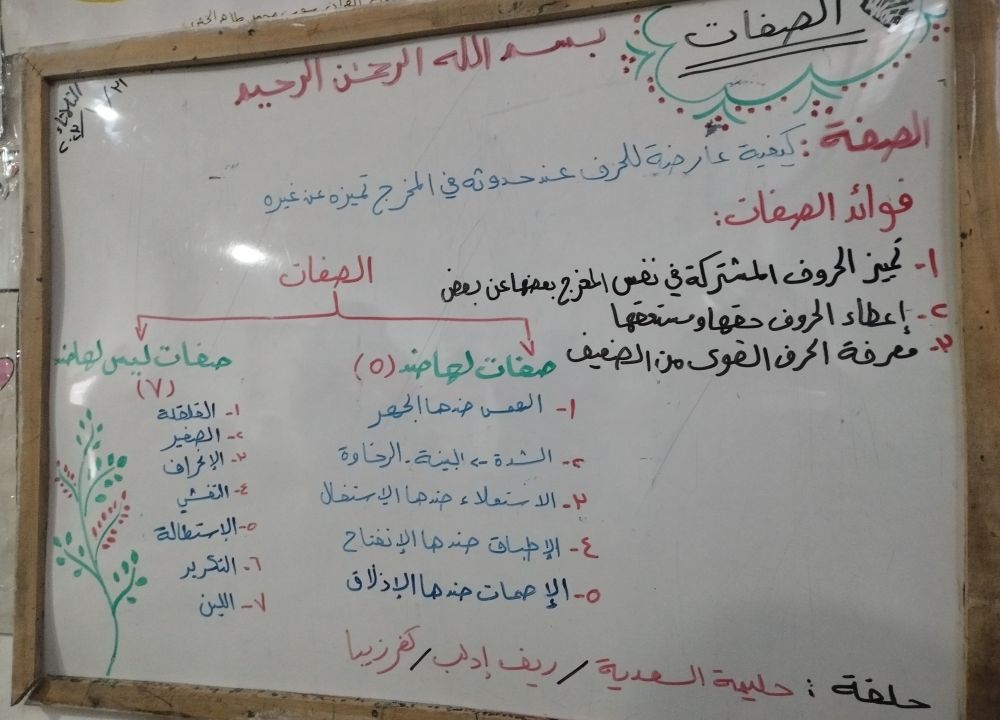 الصفات
بسم الله الرحمن الرحيم
الصفة: كيفية عارضة للحرف عند حدوثه في المخرج تميزه عن غيره
فوائد الصفات:
١- تميز الحروف المشتركة في نفس المخرج بعضها عن بعض
٢- إعطاء الحروف حقها ومستحقها
٣- معرفة الحرف القوي من الضعيف
الصفات
صفات لها ضد (٥)
١- الهمس ضدها الجهر
٢- الشدة -> البينة - الرخاوة
٣- الاستعلاء ضدها الإستفال
٤- الإطباق ضدها الإنفتاح
٥- الإصمات ضدها الإذلاق
صفات ليس لها ضد
(٧)
١- القلقلة
٢- الصفير
٣- الإنحراف
٤- التفشي
٥- الإستطالة
٦- التكرير
٧- اللين
حلقة: حليمة السعدية / ريف إدلب / كفرزيبا
الثلاثاء